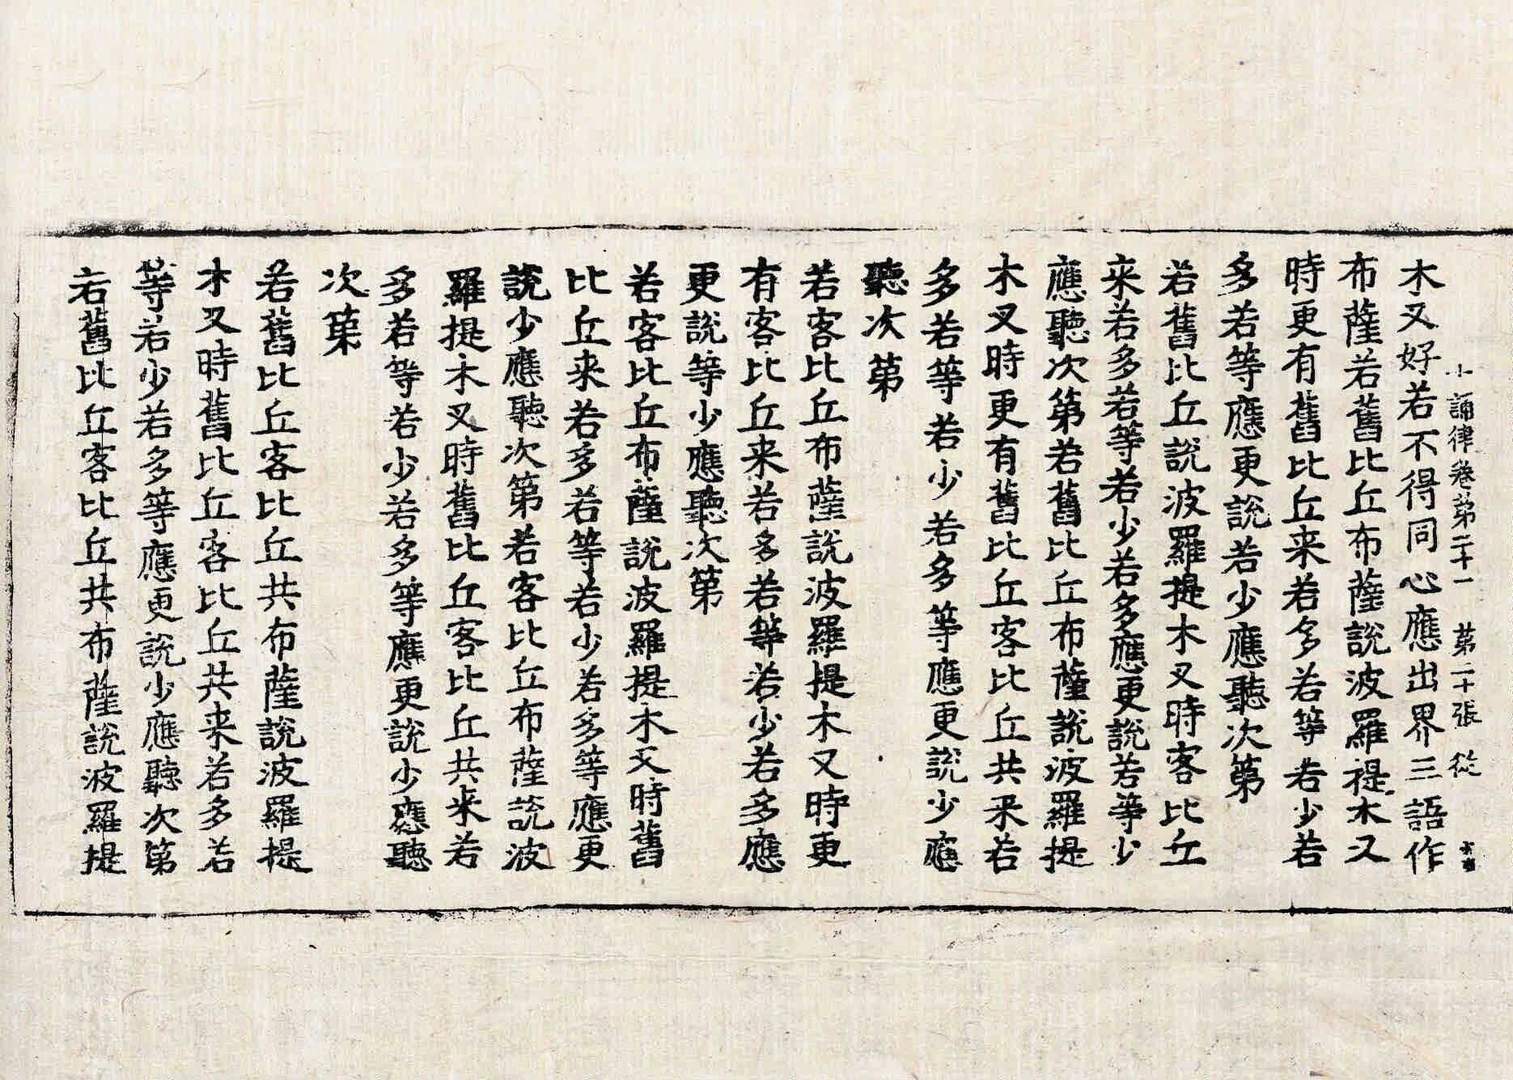 十誦律卷苐二十一 苐二十張 從
木叉好若不得同心應出界三語作
布薩若舊比丘布薩說波羅提木叉
時更有舊比丘来若多若等若少若
多若等應更說若少應聽次第
若舊比丘說波羅提木叉時客比丘
来若多若等若少若多應更說若等少
應聽次第若舊比丘布薩說波羅提
木叉時更有舊比丘客比丘共来若
多若等若少若多等應更說少應
聽次第
若客比丘布薩說波羅提木叉時更
有客比丘来若多若等若少若多應
更說等少應聽次第
若客比丘布薩說波羅提木叉時舊
比丘来若多若等若少若多等應更
說少應聽次第若客比丘布薩說波
羅提木叉時舊比丘客比丘共来若
多若等若少若多等應更說少應聽
次第
若舊比丘客比丘共布薩說波羅提
木叉時舊比丘客比丘共来若多若
等若少若多等應更說少應聽次第
若舊比丘客比丘共布薩說波羅提